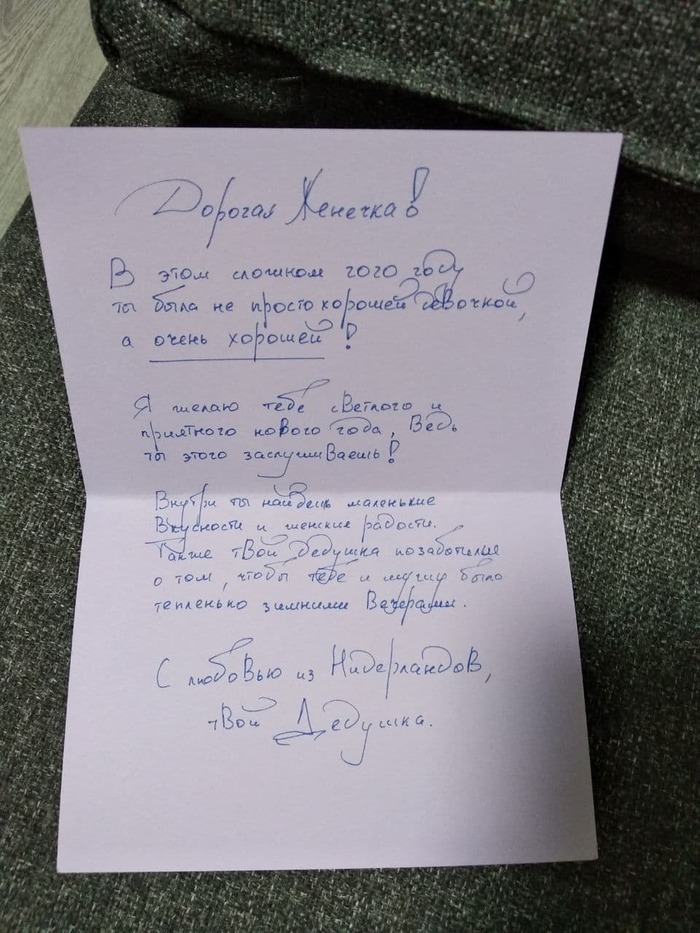 Дорогая Женечка!
В этом сложном 2020 году
ты была не просто хорошей девочкой,
а очень хорошей!
Я желаю тебе светлого и
приятного нового года, ведь
ты этого заслуживаешь!
Внутри ты найдешь маленькие
вкусности и женские радости.
Также твой Дедушка позаботился
о том, чтобы тебе и мужу было
тепленько зимними вечерами.
С любовью из Нидерландов,
твой Дедушка.